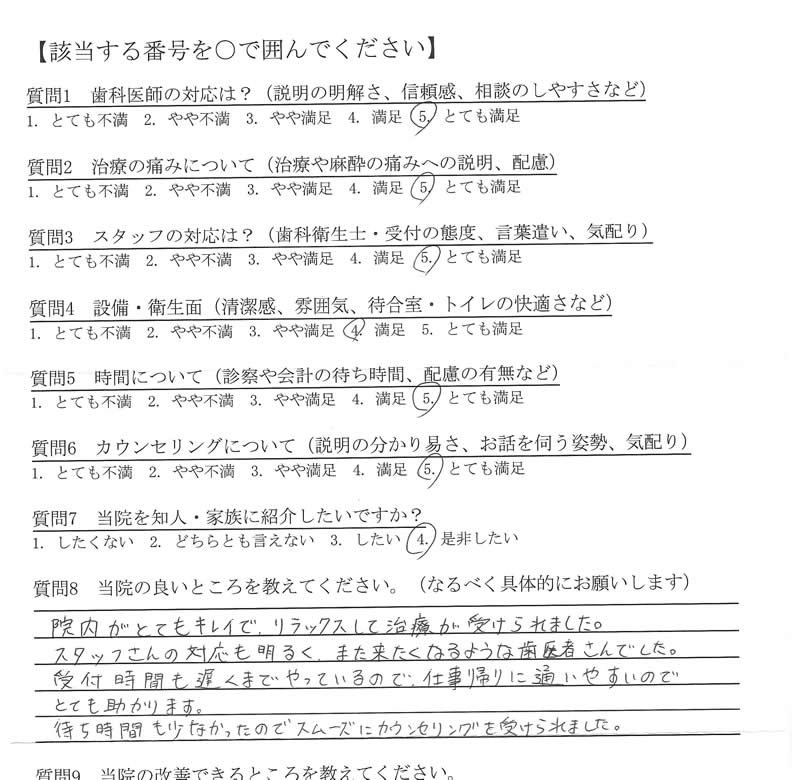 【該当する番号を〇で囲んでください】
質問1 歯科医師の対応は？（説明の明解さ、信頼感、相談のしやすさなど）
1. とても不満 2. やや不満 3. やや満足 4. 満足 5. とても満足
質問2 治療の痛みについて（治療や麻酔の痛みへの説明、配慮）
1. とても不満 2. やや不満 3. やや満足 4. 満足 5. とても満足
質問3 スタッフの対応は？（歯科衛生士・受付の態度、言葉遣い、気配り）
1. とても不満 2. やや不満 3. やや満足 4. 満足 5. とても満足
質問4 設備・衛生面（清潔感、雰囲気、待合室・トイレの快適さなど）
1. とても不満 2. やや不満 3. やや満足 4. 満足 5. とても満足
質問5 時間について（診察や会計の待ち時間、配慮の有無など）
1. とても不満 2. やや不満 3. やや満足 4. 満足 5. とても満足
質問6 カウンセリングについて（説明の分かり易さ、お話を伺う姿勢、気配り）
1. とても不満 2. やや不満 3. やや満足 4. 満足 5. とても満足
質問7 当院を知人・家族に紹介したいですか？
1. したくない 2. どちらとも言えない 3. したい 4. 是非したい
質問8 当院の良いところを教えてください。（なるべく具体的にお願いします）
院内がとてもキレイで、リラックスして治療が受けられました。
スタッフさんの対応も明るく、また来たくなるような歯医者さんでした。
受付時間も遅くまでやっているので、仕事帰りに通いやすいので
とても助かります。
待ち時間も少なかったのでスムーズにカウンセリングを受けられました。
質問9 当院の改善できるところを教えてください。